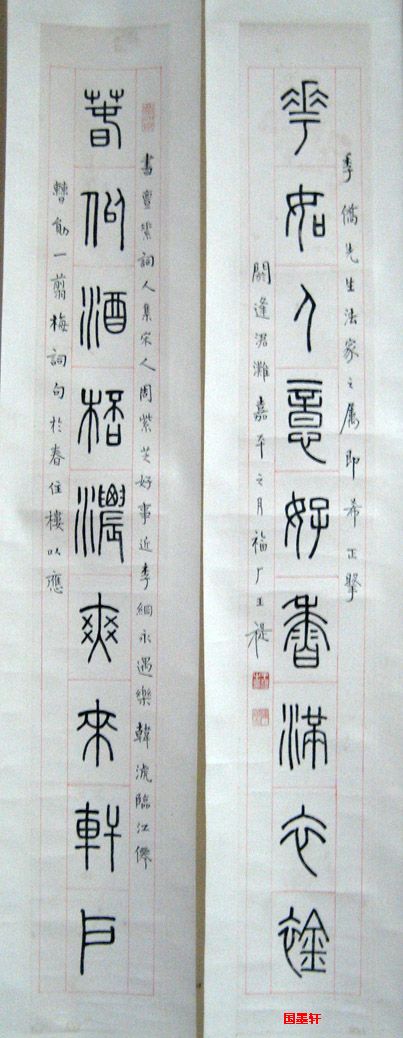 書詞人集宋人周紫芝好事近李綱永遇樂韓淲臨江僊
春似酒桮濃爽來軒戶
曹勛一翦梅詞句於春住樓以應
季僑先生法家之屬即希正掔
華如人意好香滿衣裣
閼逢涒灘嘉平之月福厂王禔
国墨轩